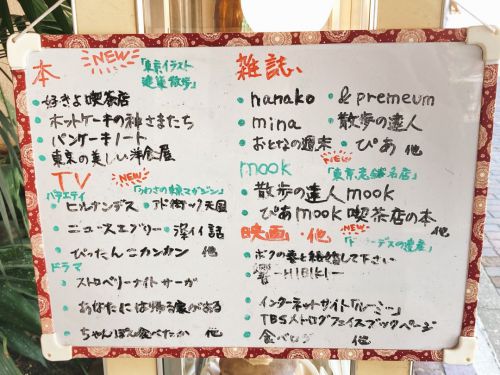 本 NEW 「東京イラスト
建築散歩」
好きよ喫茶店
ホットケーキの神さまたち
パンケーキノート
東京の美しい洋食屋
TV NEW 「うわさの東京マガジン」
バラエティ
ヒルナンデス ・アド街ック天国
ニュースエブリー ・深イイ話
ぴったんこカンカン 他
ドラマ
ストロベリーナイトサーガ
あなたには帰る家がある
ちゃんぽん食べたか 他
雑誌、
hanako ・&premeum
mina ・散歩の達人
おとなの週末 ・ぴあ 他
mook NEW 「東京老舗名店」
散歩の達人mook
ぴあmook喫茶店の本 他
映画・他 NEW
ボクの妻と結婚して下さい
響-HIBIKI-
インターネットサイト「ルーミー」
TBSメトログフェイスブックページ
食べログ 他